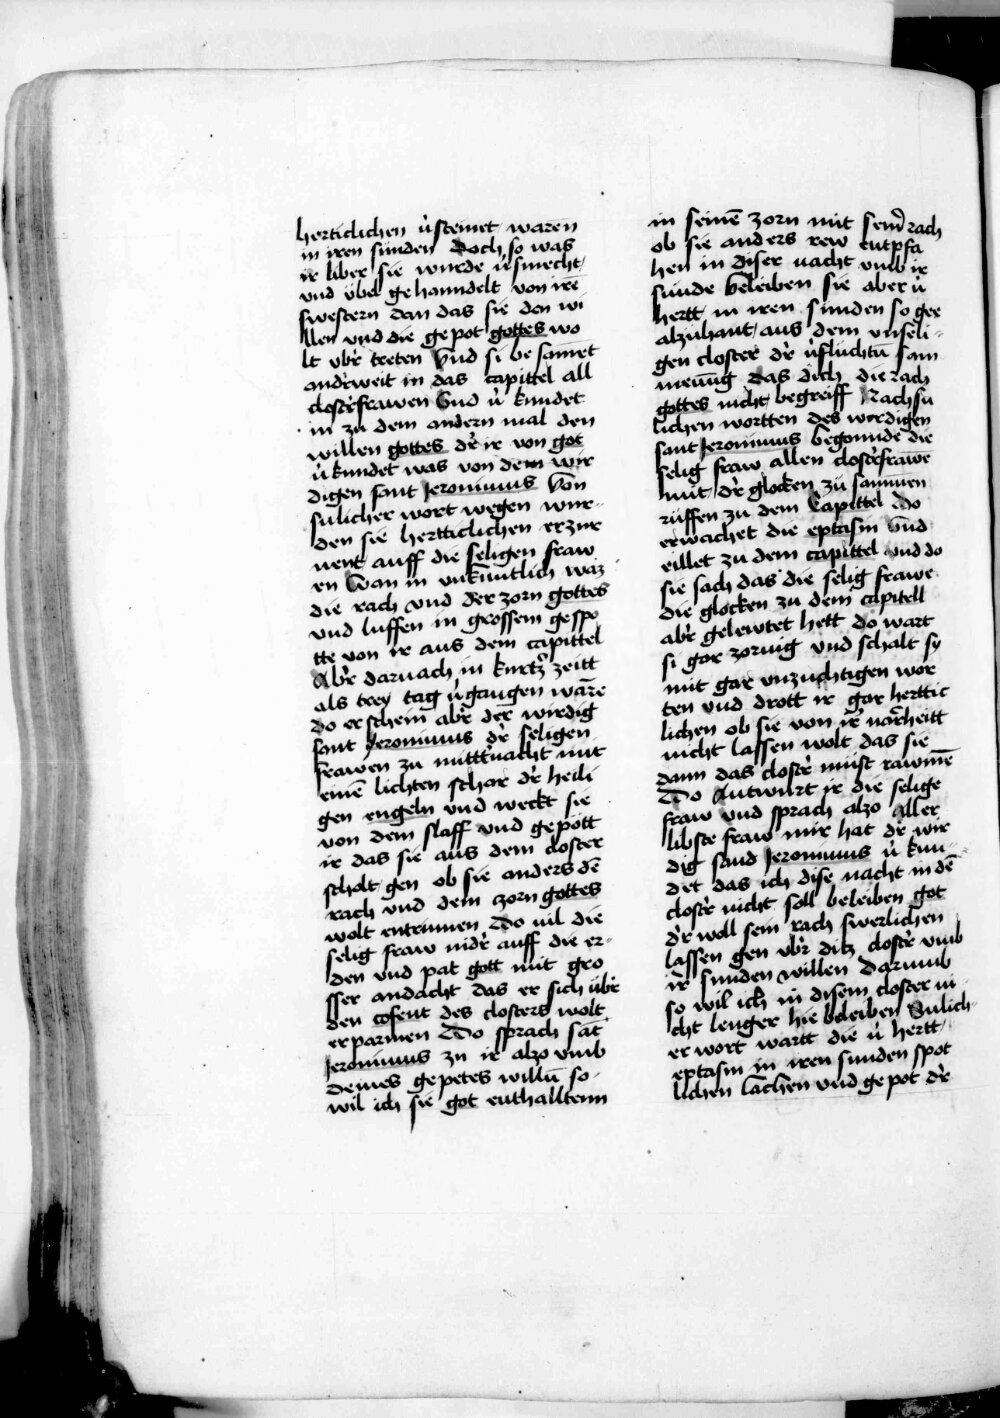 herticlichen v̓steinet waren
in iren sunden Doch so was
ir liber sie wurde v̓smecht
vnd v̈bel gehanndelt von irē
swestern dan das sie den wi
llen vnd die gepot gottes wo
lt vbr̓ treten Vnd si besamet
andr̓weit in das capittel all
closterfrawen Vnd v̓kundet
in zu dem andern mal den
willen gottes dr̓ ir von got
v̓kundet was von dem wir
digen sant Jeronimus Von
sulicher wort wegen wur-
den sie hertticlichen erzur
nent auff die seligen fraw
en Wan in vnkuntlich waz
die rach vnd der zorn gottes
vnd luffen in grossem gespo
tte von ir aus dem capittel
Abr̓ darnach in kurtzr̓ zeitt
als trey tag v̓gangen warē
do erschein abr̓ der wirdig
sant Jeronimus dr̓ seligen
frawen zu mitttnacht mit
einē lichten schar dr̓ heili
gen engeln vnd weckt sie
von dem slaff vnd gepott
ir das sie aus dem closter
scholt gen ob sie anders dē
rach vnd dem zorn gottes
wolt entrinnen Do vil die
selig fraw nidr̓ auff die er-
den vnd pat gott mit gro
sser andacht das er sich v̈br̓
den cofent des closters wolt
erparmen Do sprach sāt
Jeronimus zu ir alzo vmb
deines gepetes willn̄ so-
wil ich sie got enthalltenn
in seinē zorn mit seinr̓ rach
ob sie anders rew entpfa
hen in diser nacht vmb ir
sunde beleiben sie aber v̓
hertt in iren sunden so gee
alzuhant aus dem vnseli-
gen closter dr̓ v̓fluchtn̄ sam
menūg das dich die rach
gottes nicht begreiff Nach su
lichen wortten des wirdigen
sant Jeronimus begonnde die
selig fraw allen clostr̓frawē
mit dr̓ glocken zu sammen
rüffen zu dem Capittel Do
erwachet die eptasin Vnd
eillet zu dem capittel vnd do
sie sach das die selig frawe
die glocken zu dem capitell
abr̓ gelewtet hett do wart
si gar zornig vnd schalt sy
mit gar vnzuchtigen wor
ten vnd drott ir gar herttic
lichen ob sie von ir̓ narrheitt
nicht lassen wolt das sie
dann das clostr̓ müst rawmē
Do Antwurt ir die selige
fraw vnd sprach alzo Aller
libste fraw mir hat dr̓ wir
dig sand Jeronimus v̓kun-
det das ich dise nacht in dē
clostr̓ nicht soll beleiben got
dr̓ woll sein rach swerlichen
lassen gen vbr̓ ditz clostr̓ vmb
ir̓ sunden willen Darumb
so wil ich in disem closter ni
cht lenger hie beleiben Sulich-
er wort wartt die v̓hertt
eptasin in iren sunden spot
lichen lachen vnd gepot dr̓